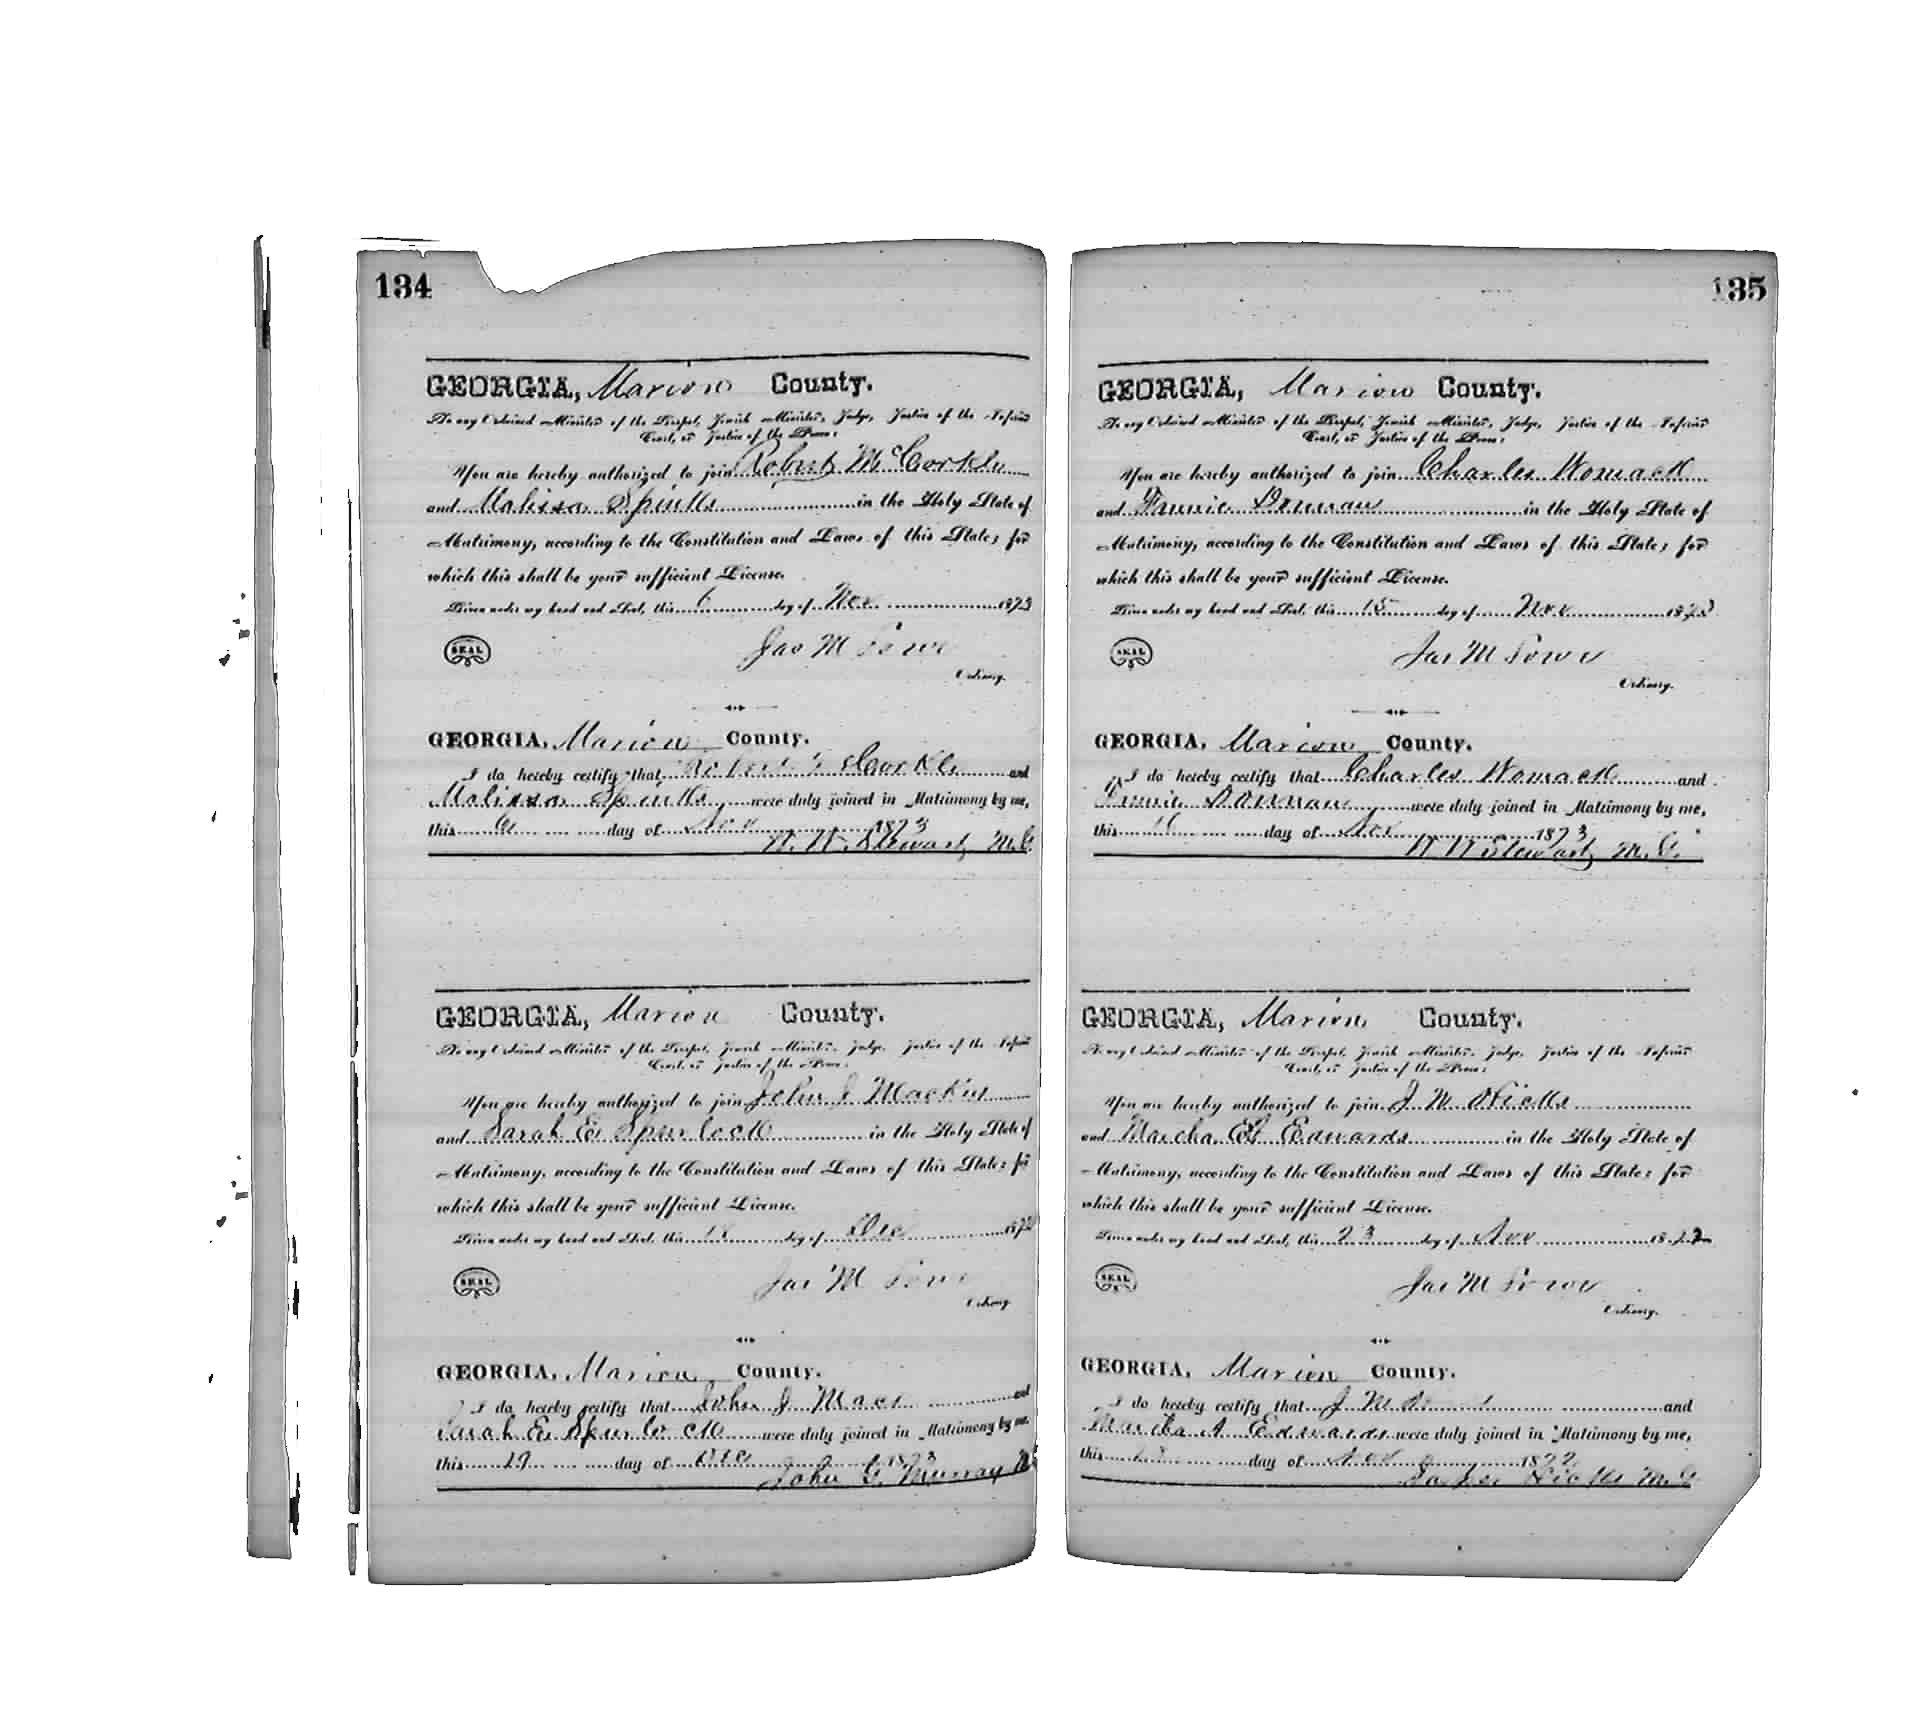 134
GEORGIA, Marion County.
To any Ordained Minister of the Gospel, Jewish Minister, Judge, Justice of the Inferior
Court, or Justice of the Peace:
You are hereby authorized to join Robert McCorkle
and Malissa Spinks in the Holy State of
Matrimony, according to the Constitution and Laws of this State; for
which this shall be your sufficient License.
Given under my hand and Seal, this 6 day of Nov 1873
SEAL
Jas M Lowe
Ordinary.
GEORGIA, Marion County.
I do hereby certify that Robert Corkle and
Malissa Spinks were duly joined in Matrimony by me,
this 6 day of Nov 1873
W. W. Stewart M.G.
GEORGIA, Marion County.
To any Ordained Minister of the Gospel, Jewish Minister, Judge, Justice of the Inferior
Court, or Justice of the Peace:
You are hereby authorized to join John J
and Sarah E Spurlock in the Holy State of
Matrimony, according to the Constitution and Laws of this State; for
which this shall be your sufficient License.
Given under my hand and Seal, this 18 day of Dec 187
SEAL
Jas M Lowe
Ordinary.
GEORGIA, Marion County.
I do hereby certify that John J and
Sarah E Spurlock were duly joined in Matrimony by me.
this 19 day of Dec 1873
John G. Murray
135
GEORGIA, Marion County.
To any Ordained Minister of the Gospel, Jewish Minister, Judge, Justice of the Inferior
Court, or Justice of the Peace:
You are hereby authorized to join Charles Womack
and Fannie in the Holy State of
Matrimony, according to the Constitution and Laws of this State; for
which this shall be your sufficient License.
Given under my hand and Seal, this 15 day of Nov 1873
SEAL
Jas M Lowe
Ordinary.
GEORGIA, Marion County.
I do hereby certify that Charles Womack and
Fannie were duly joined in Matrimony by me,
this 16 day of Nov 1873
W W Stewart M.G.
GEORGIA, Marion County.
To any Ordained Minister of the Gospel, Jewish Minister, Judge, Justice of the Inferior
Court, or Justice of the Peace:
You are hereby authorized to join J. M. Hicks
and Martha Edwards in the Holy State of
Matrimony, according to the Constitution and Laws of this State; for
which this shall be your sufficient License.
Given under my hand and Seal, this 23 day of Nov 187
SEAL
Jas M Lowe
Ordinary.
GEORGIA, Marion County.
I do hereby certify that J M and
Martha A Edwards were duly joined in Matrimony by me,
this day of Nov 187
Hicks M.G